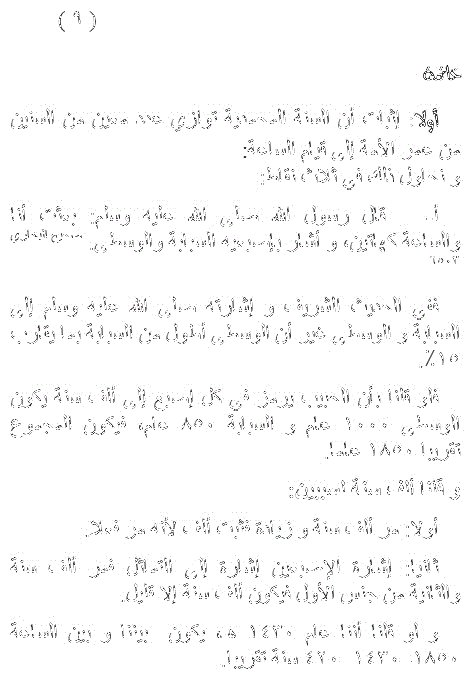 ( ٩ )
خاتمة
أولا: إثبات أن السنة المحمدية توازي عدد معين من السنين
من عمر الأمة إلى قيام الساعة:
و نحاول ذلك في ثلاث نقاط:
أ. قال رسول الله صلى الله عليه وسلم: بعثت أنا
والساعة كهاتين، و أشار بإصبعيه السبابة والوسطى. صحيح البخاري
٦٥٠٣
ففي الحديث الشريف و إشارته صلى الله عليه وسلم إلى
السبابة و الوسطى خبر أن الوسطى أطول من السبابة بما يقارب
١٥٪.
فلو قلنا بأن الحبيب يرمز في كل إصبع إلى ألف سنة يكون
الوسطى ١٠٠٠ عام و السبابة ٨٥٠ عام، فيكون المجموع
تقريبا ١٨٥٠ عاما.
و قلنا ألف سنة لسببين:
أولا: مر ألف سنة و زيادة فثبت ألف لأنه مر فعلا.
ثانيا: إشارة الإصبعين إشارة إلى التماثل فمر ألف سنة
والثانية من جنس الأول فيكون ألف سنة إلا قليل.
و لو قلنا أننا عام ١٤٣٠ هـ، يكون بيننا و بين الساعة
١٨٥٠- ١٤٣٠- ٤٢٠ سنة تقريبا.